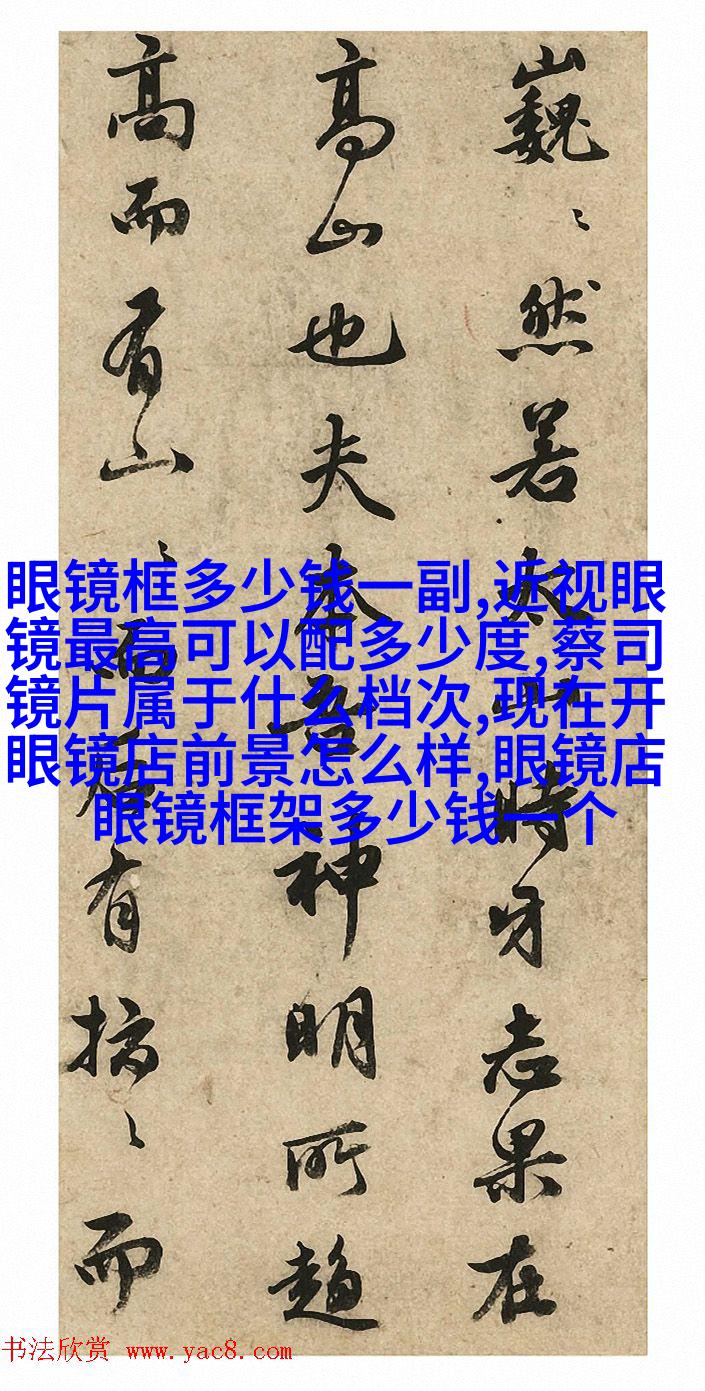 巍〻然若太山時志果在
高山也夫神明所趨
高而有山〻而有〻而
眼镜框多少钱一副,近视眼
镜最高可以配多少度,蔡司
镜片属于什么档次,现在开
眼镜店前景怎么样,眼镜店
眼镜框架多少钱一个
书法欣赏 www.yac8.com